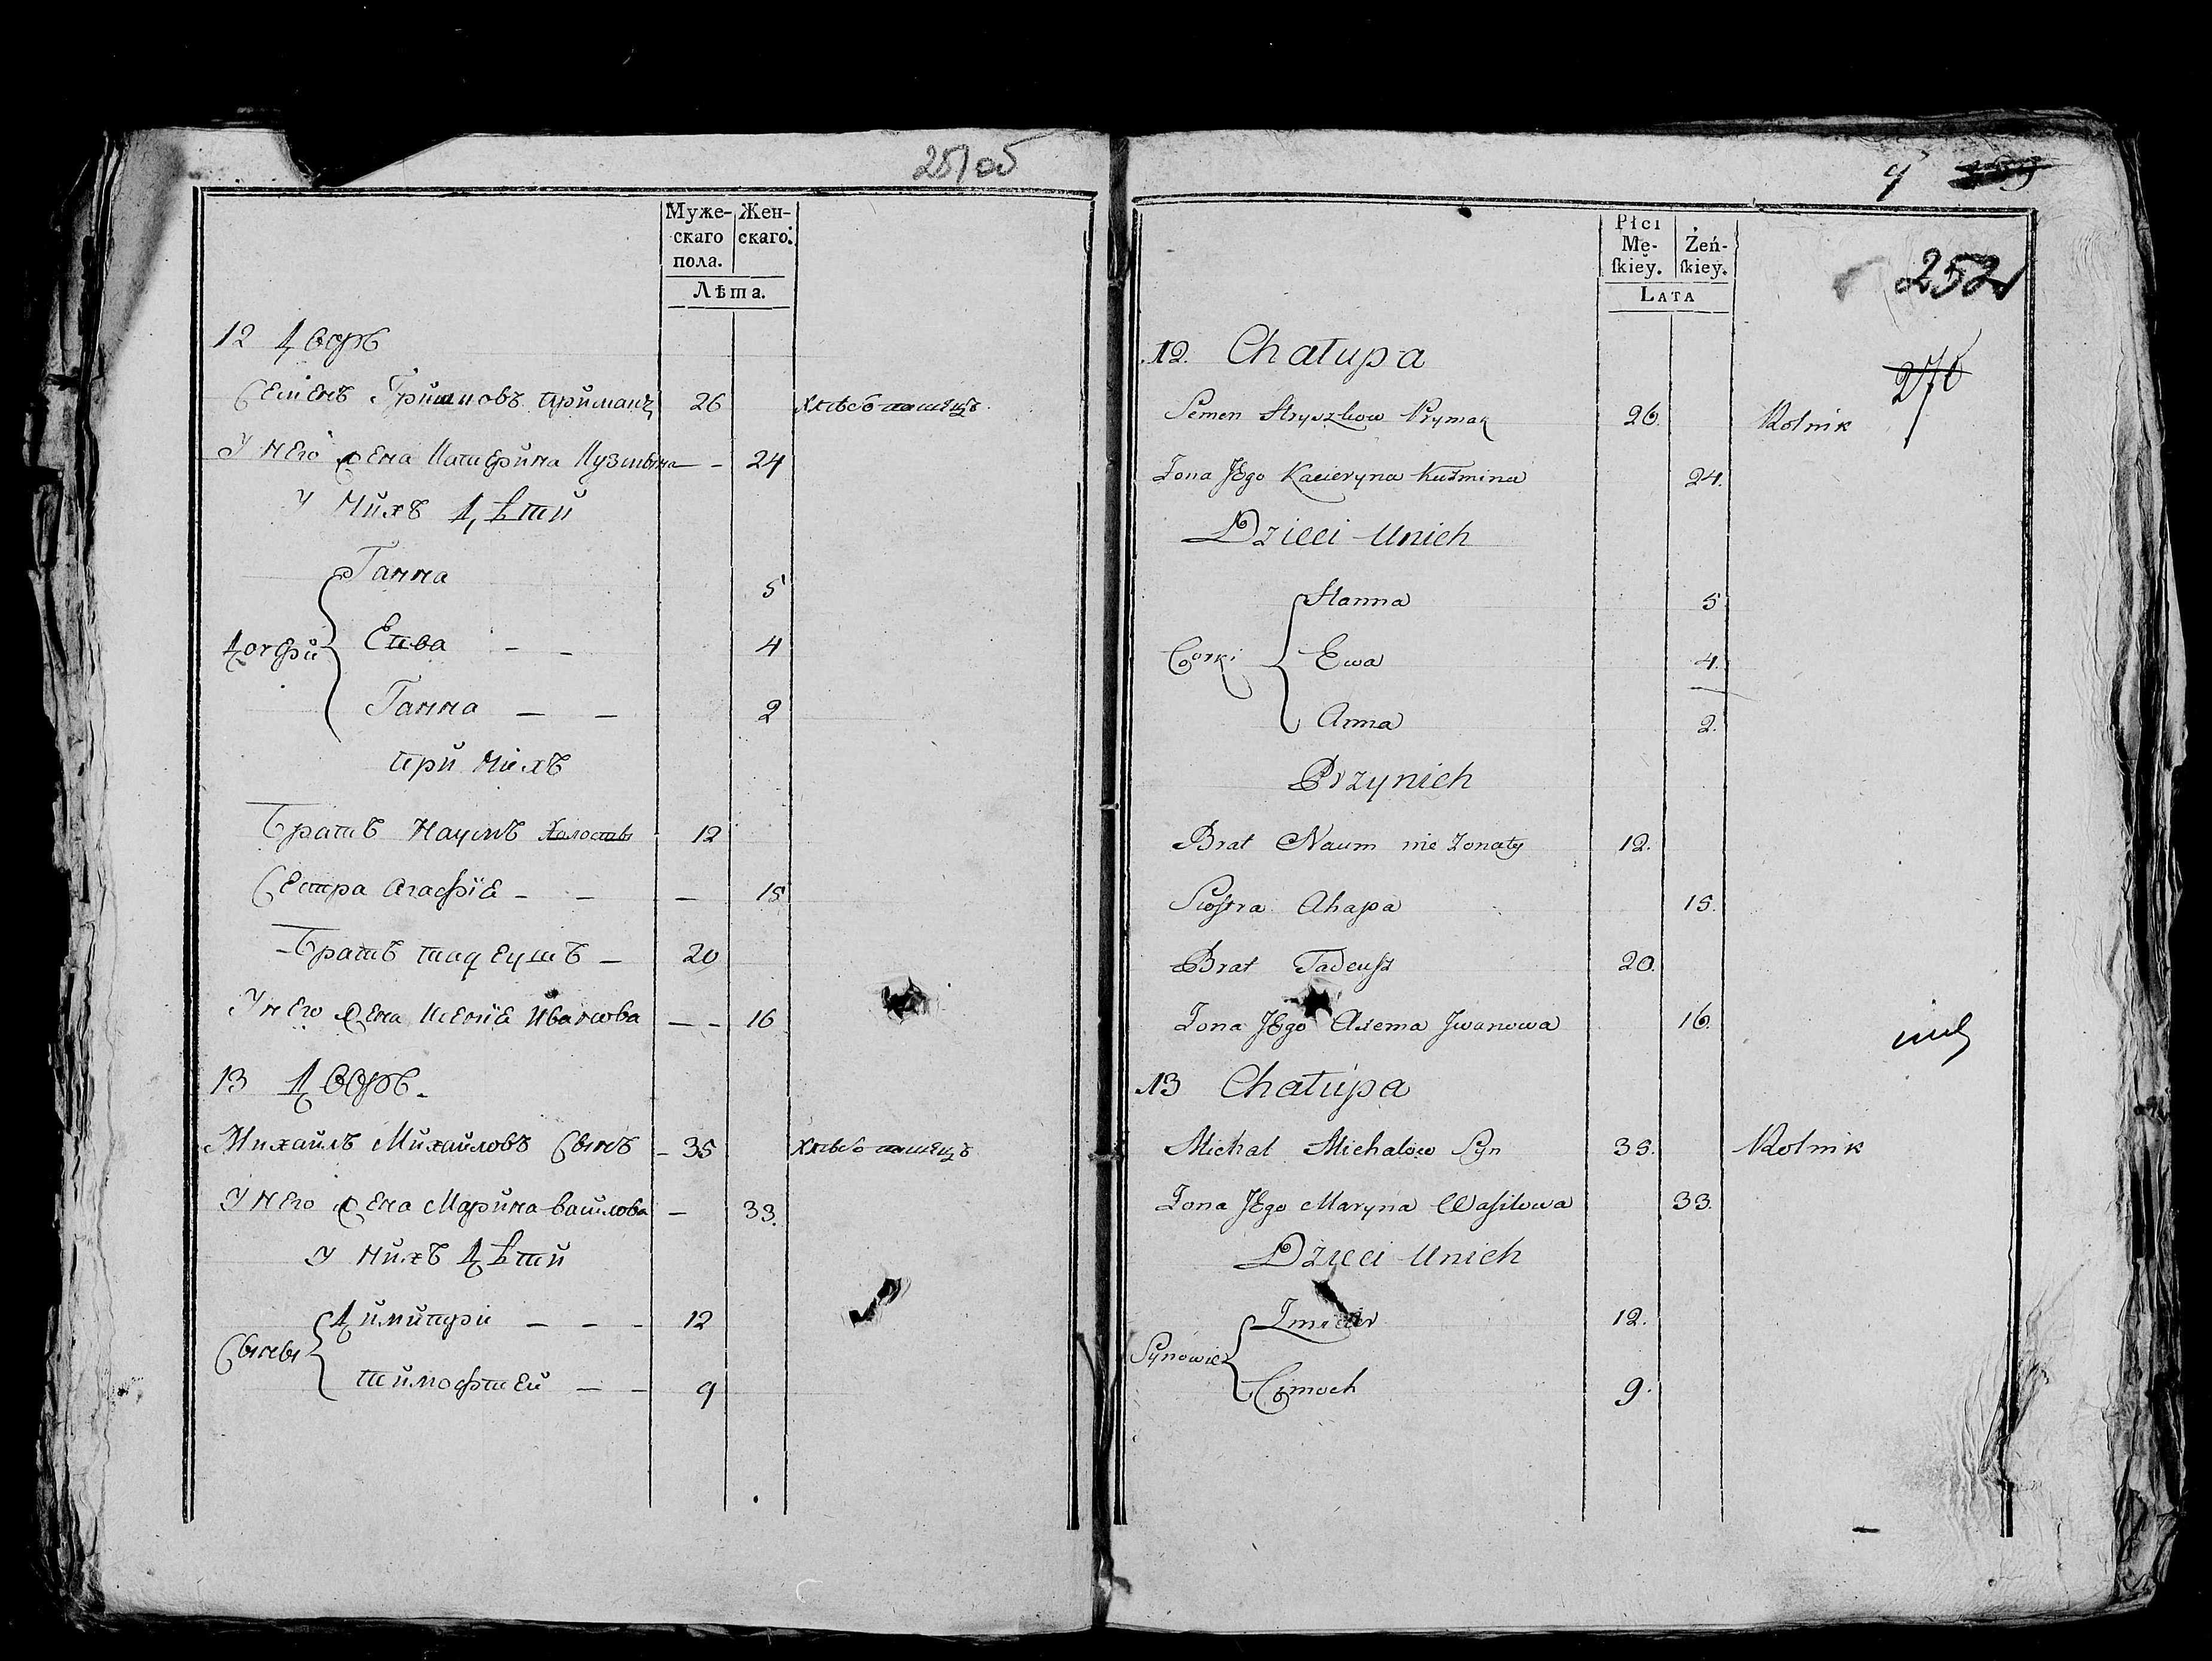 251об
Муже-
скаго
пола.
Жен-
скаго.
Лѣта.
12 Дворъ
Семенъ Гришковъ примакъ 26 хлѣбопашецъ
У него жена Катерина Кузмина — 24
У нихъ Дѣти
Ганна 5
Дочери Ева — — 4
Ганна — — 2
при нихъ
Братъ Наумъ холостъ 12
Сестра Агафiя — — — 15
Братъ тадеушъ — 20
У него жена Ксенiя Иванова — — 16
13 Дворъ.
Михайлъ Михайловъ Сынъ — 35 хлѣбопашецъ
У него жена Марина васил̾ова — 33.
У нихъ Дѣти
Димитрiи — — — 12
Сыны
тимофтей — — 9
9
252
276
Płci
Mę-
ſkiey.
Żeń-
ſkiey.
LATA
12. Chałupa
Semen Hryszkow Prymak 26. Rolnik
Żona Jego Kacieryna Kuźmina 24.
Dzieci Unich
Hanna 5
Corki Ewa 4.
Anna 2.
Przynich
Brat Naum nie żonaty 12.
Siostra Ahapa 15.
Brat Tadeusz 20.
Żona Jego Axenia Jwanowa 16.
13 Chałupa
Michał Michałow Syn 35. Rolnik
Żona Jego Maryna Wasilowa 33.
Dzieci Unich
Zmicier 12.
Synowie
Cimoch 9.